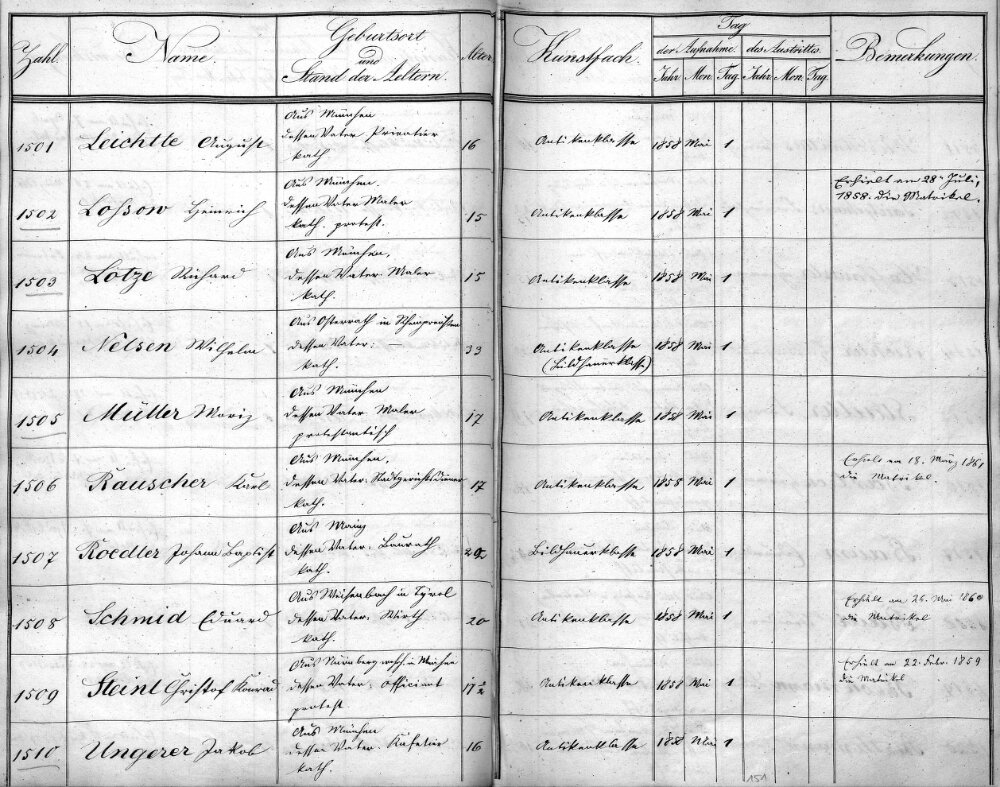 Zahl. Name. Geburtsort und Stand der Aeltern. Alter Kunstfach. Tag der Aufnahme. des Austritts. Jahr Mon. Tag. Jahr Mon. Tag. Bemerkungen.
Aus München
1501 Leichtle August dessen Vater Privatier 16 Antikenklasse 1858 Mai 1
kath.
Aus München. Erhielt am 28n Juli,
1502 Loßow Heinrich dessen Vater Maler 15 Antikenklasse 1858 Mai 1 1858. die Matrikel.
kath. protest.
Aus München,
1503 Lotze Richard dessen Vater Maler 15 Antikenklasse 1858 Mai 1
kath.
Aus Osterrath in Rheinpreußen
1504 Nelsen Wilhelm dessen Vater: — 33 Antikenklasse 1858 Mai 1
kath. (Bildhauerklasse)
Aus München
1505 Müller Moriz dessen Vater Maler 17 Antikenklasse 1858 Mai 1
protestantisch
Aus München, Erhielt am 18. März 1861
1506 Rauscher Karl dessen Vater: Stadtgerichtsdiener 17 Antikenklasse 1858 Mai 1 die Matrikel.
kath.
Aus Mainz
1507 Roedler Johann Baptist dessen Vater: Baurath Bildhauerklasse 1858 Mai 1
kath.
Aus Weißenbach in Tyrol Erhielt am 26. Mai 1860
1508 Schmid Eduard dessen Vater: Wirth 20 Antikenklasse 1858 Mai 1 die Matrikel
kath.
Aus Nürnberg in München Erhielt am 22. Febr. 1859
1509 Staint Christof Konrad dessen Vater: Officiant 17½ Antikenklasse 1858 Mai 1 die Matrikel
protest
Aus München
1510 Ungerer Jakob dessen Vater: Kafetier 16 Antikenklasse 1858 Mai 1
kath.
151